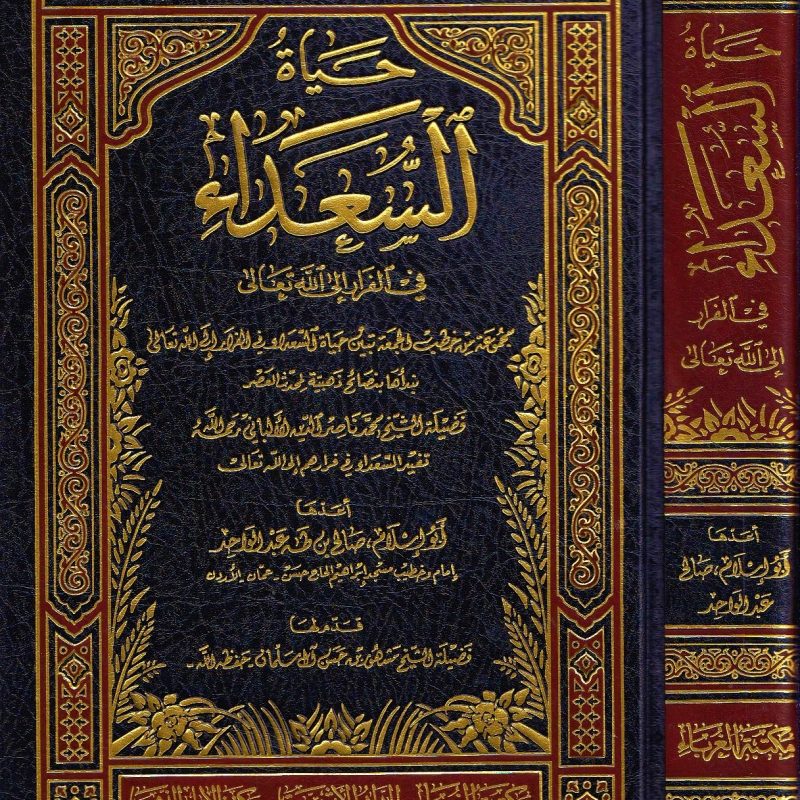 حَيَاةُ
السُّعَدَاءِ
في الفرار إلى الله تعالى
مجموعة من خطب الجمعة تبين حياة السعداء في الفرار إلى الله تعالى
نبدأها بنصائح ذهبية لمحدث العصر
فضيلة الشيخ محمد ناصر الدين الألباني رحمه الله
تفيد السعداء في فرارهم إلى الله تعالى
أعدها
أبو إسلام، صالح بن طه عبد الواحد
إمام وخطيب مسجد إبراهيم الحاج حسن - عمان - الأردن
قدم لها
فضيلة الشيخ مشهور بن حسن آل سلمان - حفظه الله -
مكتبة الغرباء الدار الأثرية
حَيَاةُ
السُّعَدَاءِ
في الفرار
إلى الله تعالى
أعدها
أبو إسلام، صالح
عبد الواحد
مكتبة الغرباء